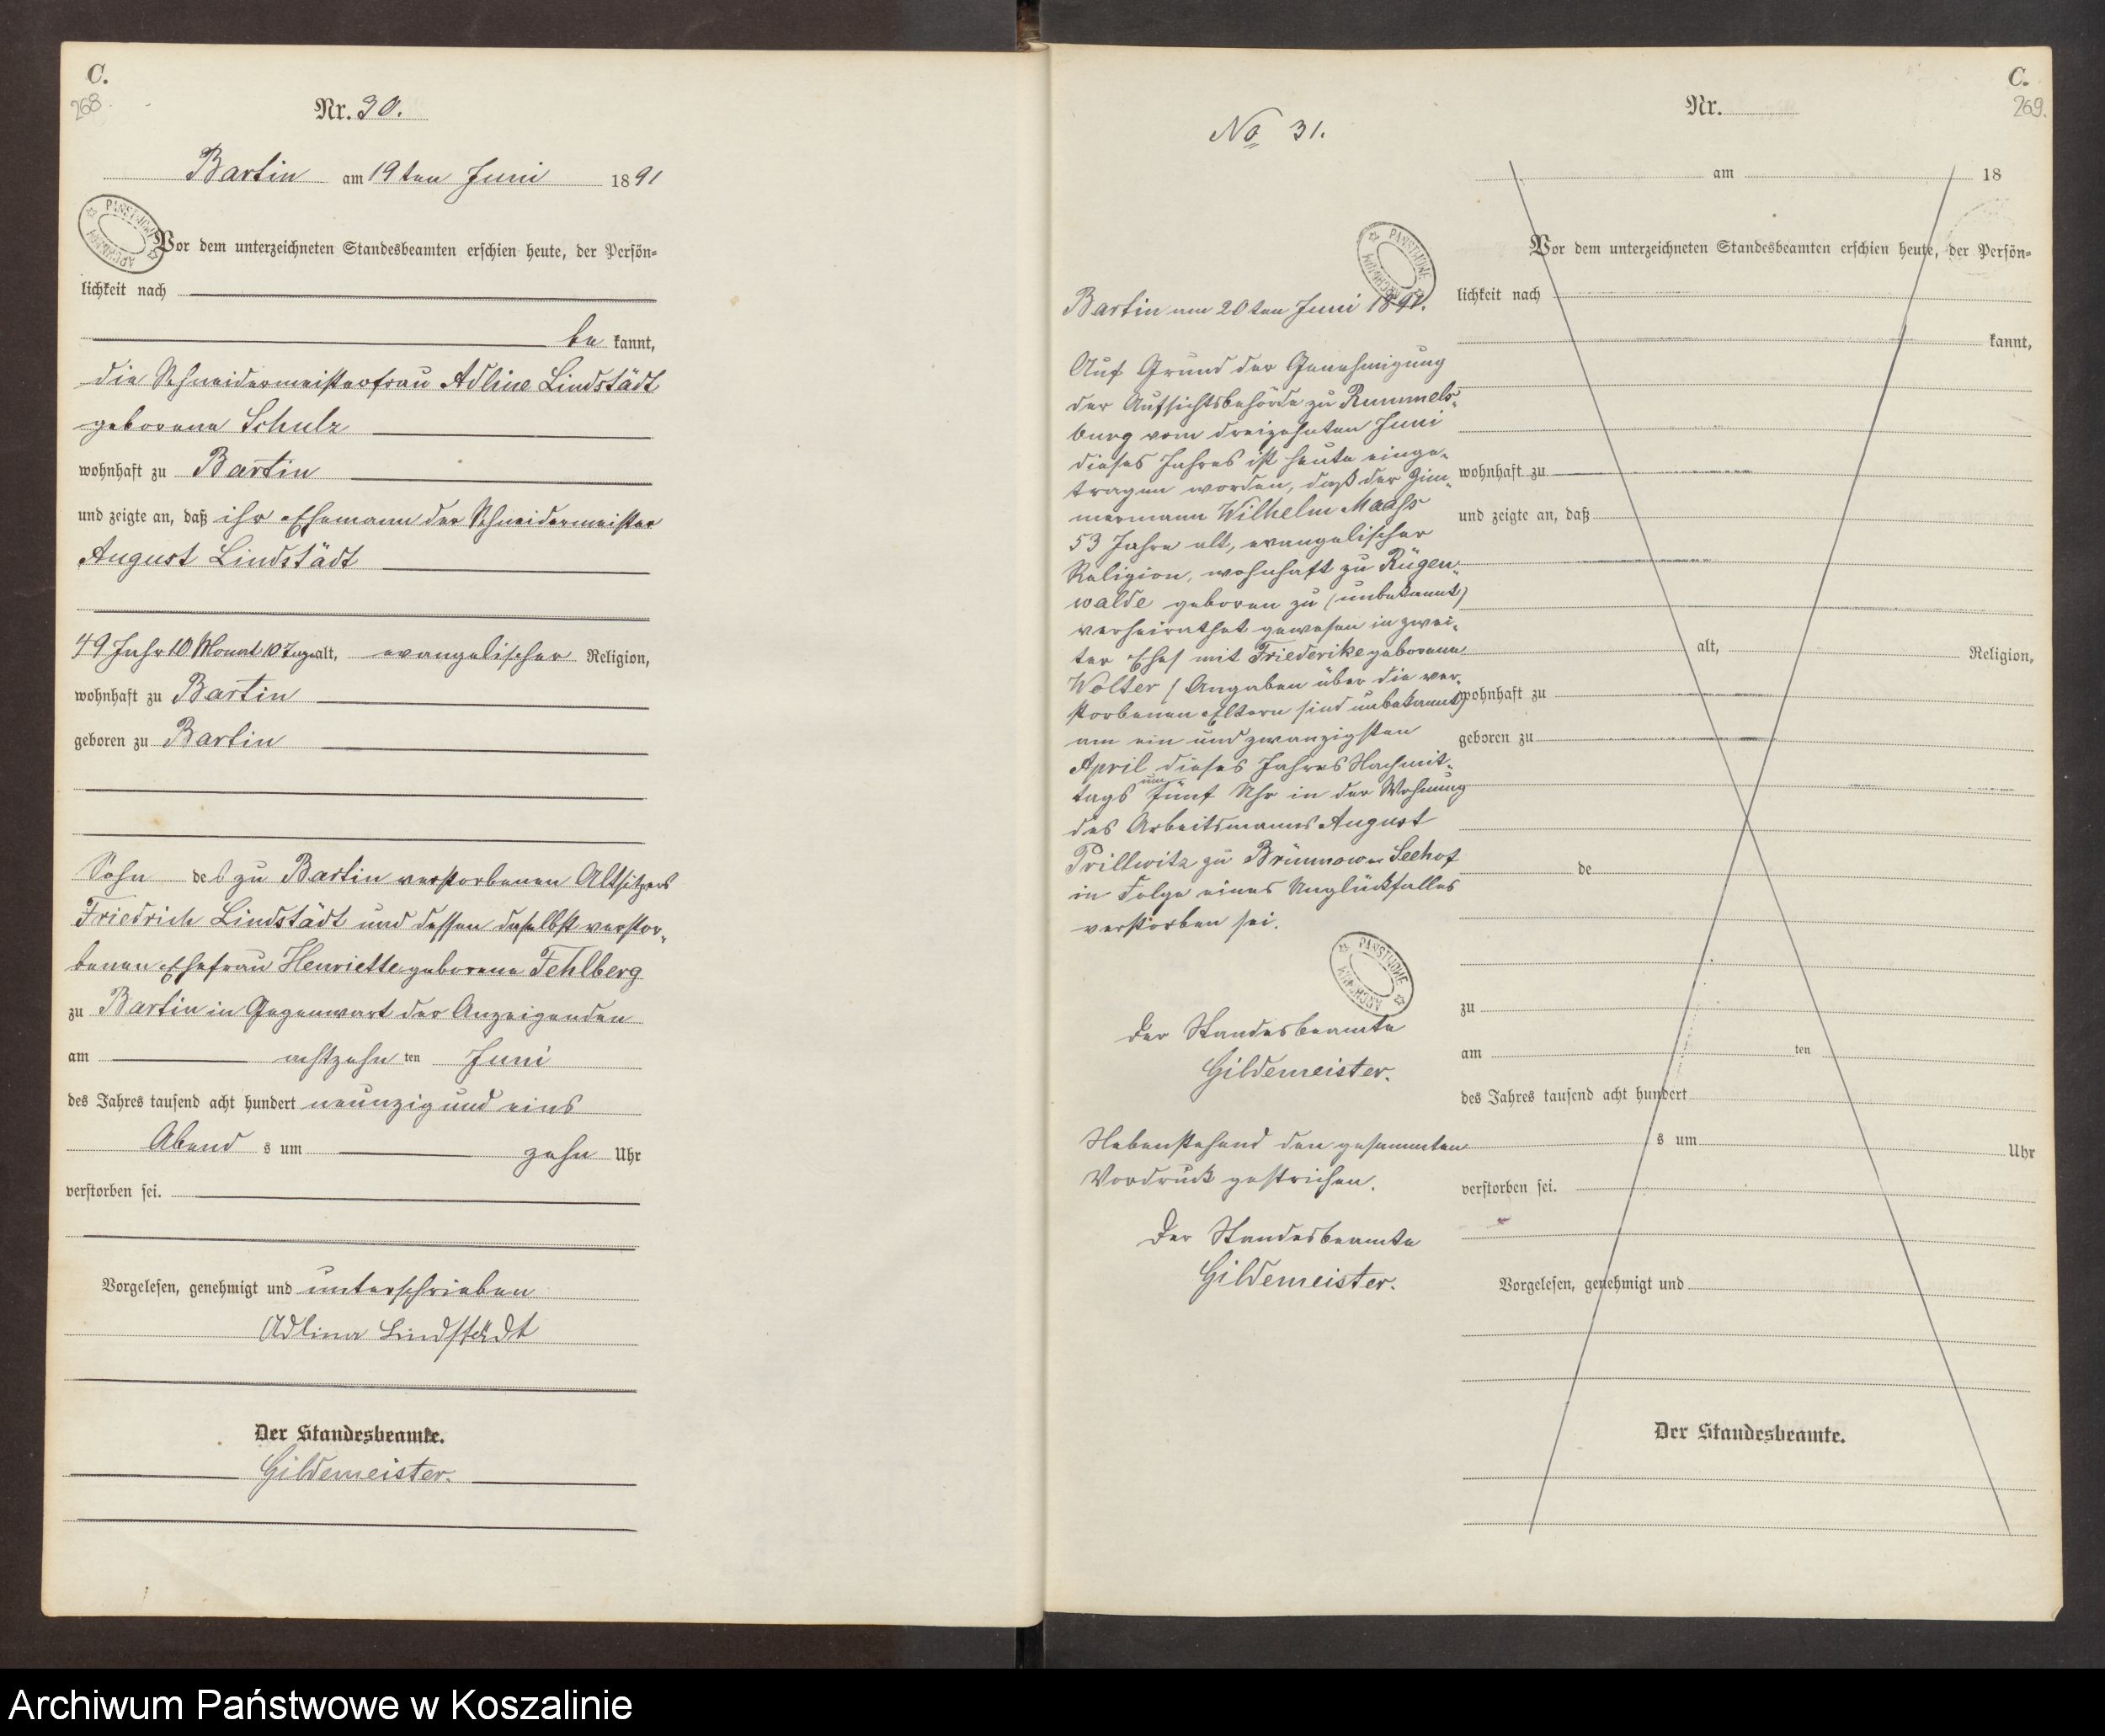 C.
268
Nr. 30.
Bartin am 19ten Juni 1891
PAŃSTWOWE ARCHIWUM
Vor dem unterzeichneten Standesbeamten erschien heute, der Persön-
lichkeit nach
be kannt,
die Schneidermeisterfrau Adline Lindstädt
geborene Schulz
wohnhaft zu Bartin
und zeigte an, daß ihr Ehemann der Schneidermeister
August Lindstädt
49 Jahr 10 Monat 10 Tage alt, evangelischer Religion,
wohnhaft zu Bartin
geboren zu Bartin
Sohn des zu Bartin verstorbenen Altsitzers
Friedrich Lindstädt und dessen daselbst verstor-
benen Ehefrau Henriette geborene Fehlberg
zu Bartin in Gegenwart der Anzeigenden
am achtzehn ten Juni
des Jahres tausend acht hundert neunzig und eins
Abend s um zehn Uhr
verstorben sei.
Vorgelesen, genehmigt und unterschrieben
Adline Lindstädt
Der Standesbeamte.
Gildemeister.
No 31.
PAŃSTWOWE ARCHIWUM
Bartin am 20ten Juni 1891.
Auf Grund der Genehmigung
der Aufsichtsbehörde zu Rummels-
burg vom dreizehnten Juni
dieses Jahres ist heute einge-
tragen worden, daß der Zim-
mermann Wilhelm Maahs
53 Jahre alt, evangelischer
Religion, wohnhaft zu Rügen-
walde geboren zu (unbekannt)
verheirathet gewesen in zwei-
ter Ehe mit Friederike geborene
Wolter (Angaben über die ver-
storbenen Eltern sind unbekannt)
am ein und zwanzigsten
April dieses Jahres Nachmit-
tags um fünf Uhr in der Wohnung
des Arbeitsmanns August
Prillwitz zu Brünnower Seehof
in Folge eines Unglücksfalles
verstorben sei.
PAŃSTWOWE ARCHIWUM
Der Standesbeamte
Gildemeister.
Nebenstehend den gesammten
Vordruck gestrichen.
Der Standesbeamte
Gildemeister.
C.
269.
Nr.
am 18
Vor dem unterzeichneten Standesbeamten erschien heute, der Persön-
lichkeit nach
kannt,
wohnhaft zu
und zeigte an, daß
alt, Religion,
wohnhaft zu
geboren zu
de
zu
am ten
des Jahres tausend acht hundert
s um Uhr
verstorben sei.
Vorgelesen, genehmigt und
Der Standesbeamte.
Archiwum Państwowe w Koszalinie